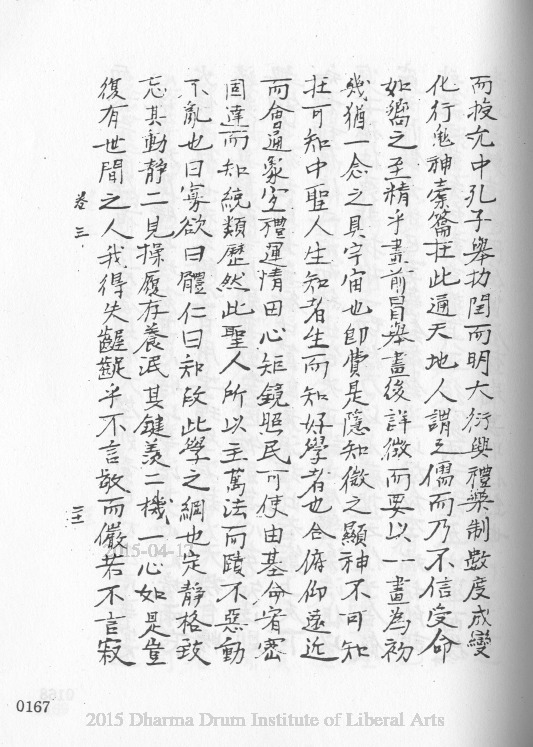 而扱允中孔子舉扐閏而明大衍與禮樂制數度成變
化行鬼神橐籥在此通天地人謂之儒而乃不信受命
如嚮之至精乎畫前冒舉畫後詳徵而要以一畫為初
幾猶一念之具宇宙也即費是隱知微之顯神不可知
在可知中聖人生知者生而知好學者也合俯仰遠近
而會通彖定禮運情田心矩鏡照民可使由基命宥密
固達而知統類歷然此聖人所以主萬法而賾不惡動
不亂也曰寡欲曰體仁曰知改此學之綱也定靜格致
忘其動靜二見操履存養泯其鍵羨二機一心如是豈
復有世間之人我得失齷齪乎不言敬而儼若不言寂
卷三
三十一
0167
2015-04-1
2015 Dharma Drum Institute of Liberal Arts